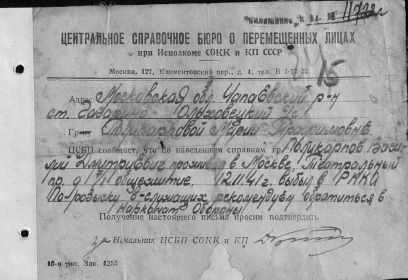 ЦЕНТРАЛЬНОЕ СПРАВОЧНОЕ БЮРО О ПЕРЕМЕЩЕННЫХ ЛИЦАХ
при Исполкоме СОКК и КП СССР
Москва, 127, Климентовский пер., д. 1, тел. В 1-72-22
15
Адрес Московская обл.
ст.
Гр-ну Поликарповой Марии Трофимовне
ЦСБП сообщает, что по наведенным справкам гр. Поликарпов Васи-
лий Дмитриевич проживал в Москве Театральный
пр. общежитие. 12.11.41 г. выбыл в РККА
По розыску в-служащих рекомендуем обратиться в
Наркомат Обороны
Получение настоящего письма просим подтвердить
Начальник ЦСБП СОКК и КП
16-я тип. Зак. 4252